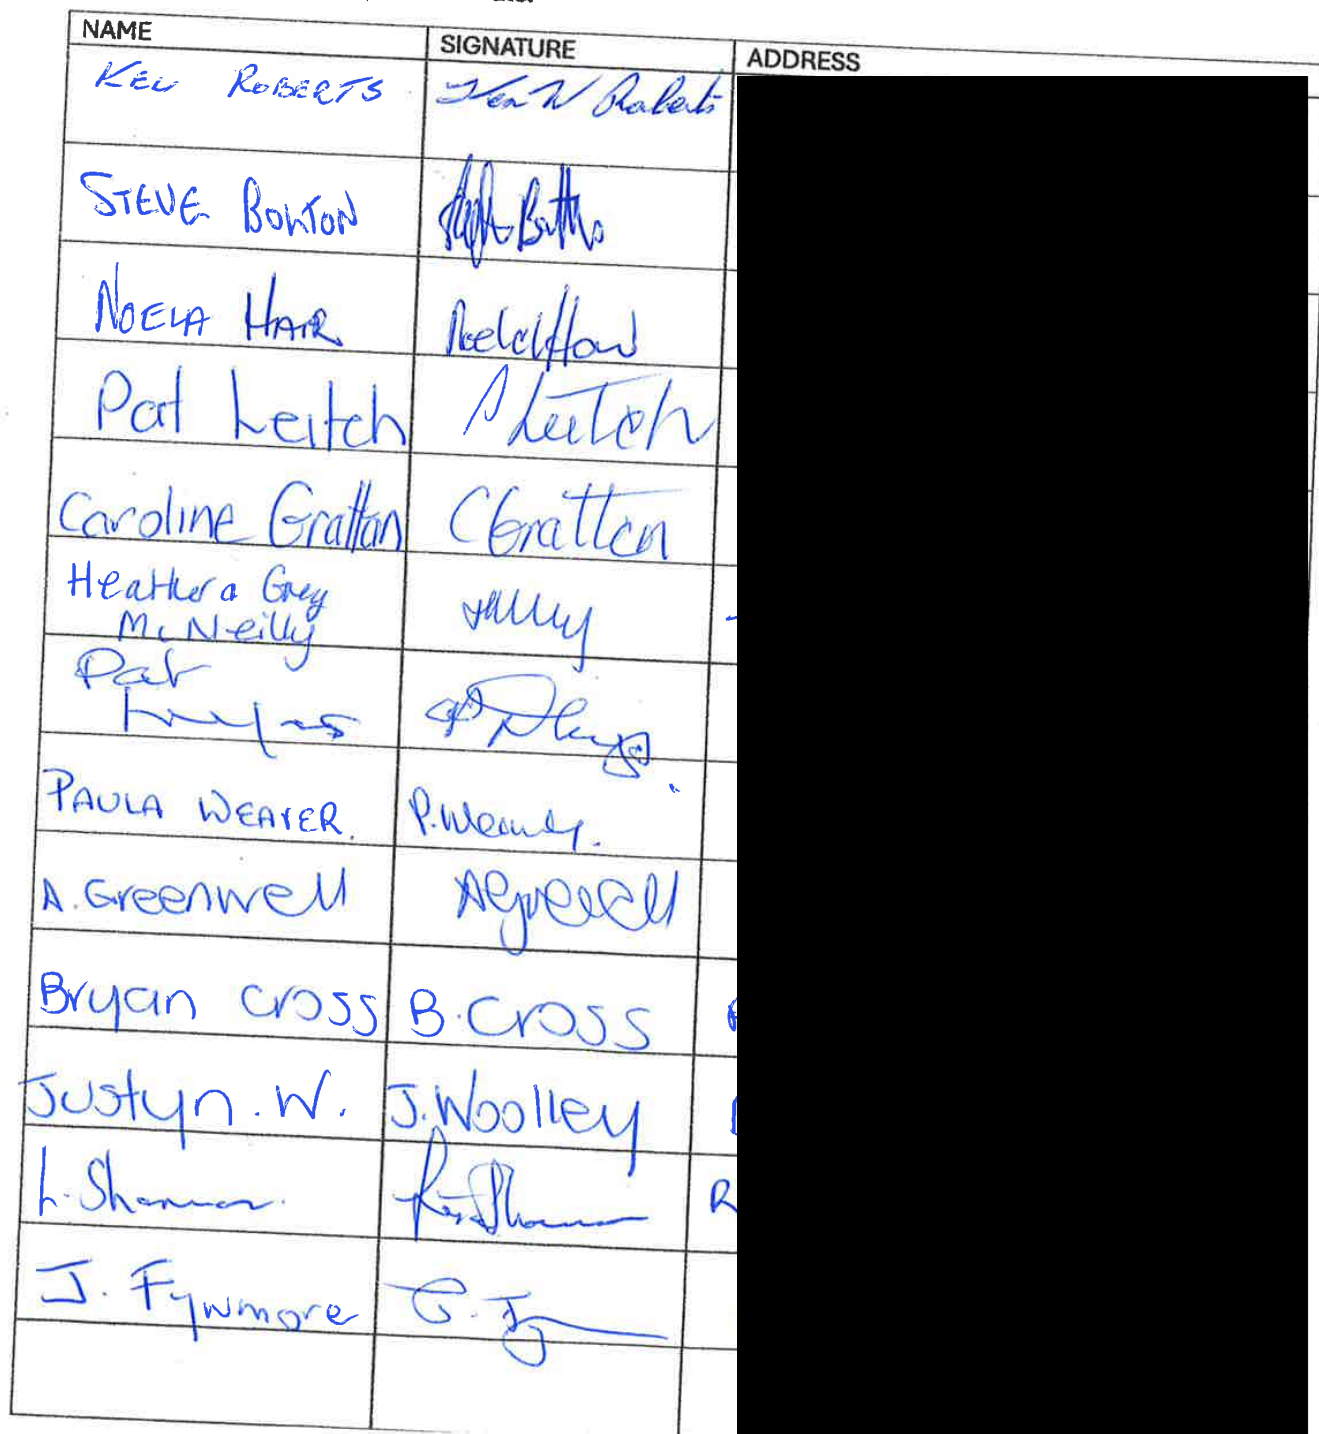 NAME SIGNATURE ADDRESS
KEN ROBERTS Ken W Roberts
STEVE BOLTON
NOELA HAIR
Pat Leitch P Leitch
Caroline Grattan C Grattan
Heather a Grey
McNeilly
Pat
PAULA WEAVER. P. Weaver.
A. Greenwell
Bryan Cross B. Cross
Justyn. W. J. Woolley
L. Shannon. R
J. Fynmore